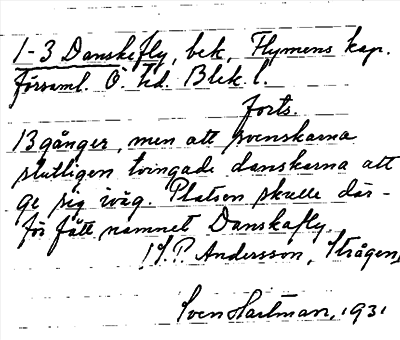 1-3 Danskefly, bek. Flymens kap.
församl. Ö. hd. Blek. l.
forts.
13 gånger, men att svenskarna
slutligen tvingade danskarna att
ge sig iväg. Platsen skulle där-
för fått namnet Danskafly.
P. Andersson, Strågen,
Sven Hartman, 1931